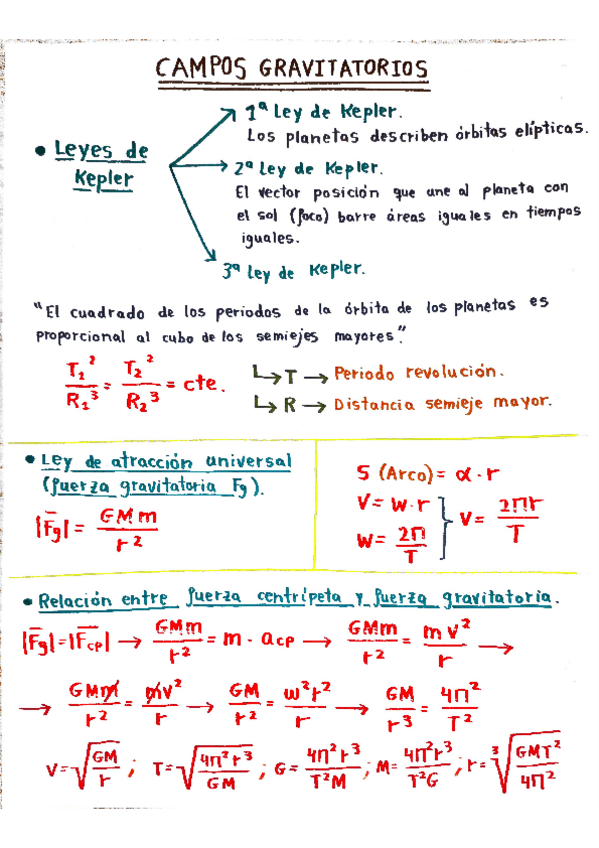 CAMPOS GRAVITATORIOS
• Leyes de Kepler
1ª Ley de Kepler.
Los planetas describen órbitas elípticas.
2ª Ley de Kepler.
El vector posición que une al planeta con
el sol (foco) barre áreas iguales en tiempos
iguales.
3ª Ley de Kepler.
"El cuadrado de los periodos de la órbita de los planetas es
proporcional al cubo de los semiejes mayores".
T₁²/R₁³ = T₂²/R₂³ = cte.
↳ T → Periodo revolución.
↳ R → Distancia semieje mayor.
• Ley de atracción universal
(fuerza gravitatoria Fg).
|Fg| = GMm/r²
S (Arco) = α · r
V = w · r
w = 2π/T
V = 2πr/T
• Relación entre fuerza centrípeta y fuerza gravitatoria.
|Fg| = |Fcp| → GMm/r² = m · acp → GMm/r² = mv²/r →
→ GMm/r² = mv²/r → GM/r² = w²r²/r → GM/r³ = 4π²/T²
V = √(GM/r) ; T = √(4π²r³/GM) ; G = 4π²r³/T²M ; M = 4π²r³/T²G ; r = ³√(GMT²/4π²)